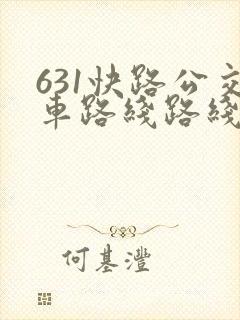 631快路公交
車路綫路綫
何基灃